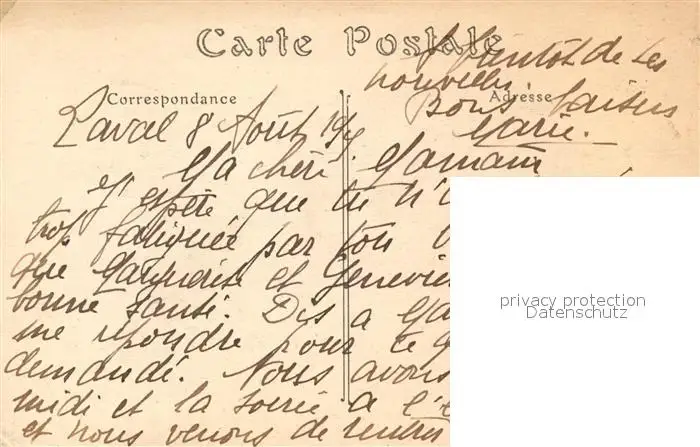 Carte Postale
A bientôt de tes
nouvelles
Correspondance
Adresse
Bons baisers
Marie.
Laval 8 Août 19
Ma chère Maman
J'espère que tu n'
trop fatiguée par ton
que Marguerite et Geneviè
bonne santé. Dis a
me répondre pour ce q
demandé. Nous avons
midi et la soirée a l'
et nous venons de rentrer
privacy protection
Datenschutz